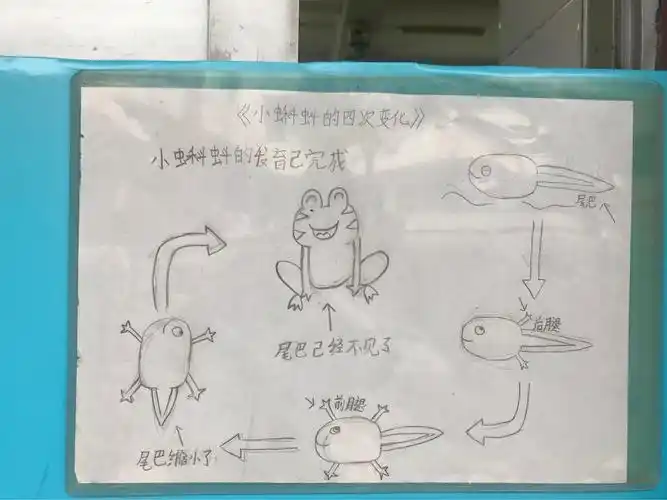 《小蝌蚪的四次变化》
小蝌蚪的发育已完成
尾巴
后腿
前腿
尾巴缩小了
尾巴已经不见了